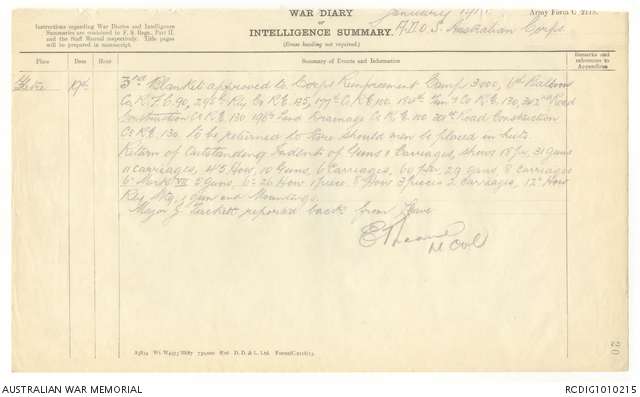 WAR DIARY
OR
INTELLIGENCE SUMMARY.
(Erase heading not required.)
Instructions regarding War Diaries and Intelligence
Summaries are contained in F. S. Regs., Part II.
and the Staff Manual respectively. Title pages
will be prepared in manuscript.
Army Form C. 2118.
January
A.D.O.S. Australian Corps
Place
Date
Hour
Summary of Events and Information
Remarks and
references to
Appendices
Flêtre 17th
3rd Blanket approved to Corps Reinforcement Camp 3000, Battn
Co. R.F.C. 90, 296th Rly Co R.E. 125, 177th Co R.E. 110. Co R.E. 130, Road
Construction Co R.E. 130 196th Land Drainage Co R.E. 110 Road Construction
Co R.E. 130 to be returned to Base should men be placed in huts
Return of Outstanding Indents of Guns & Carriages, shows 18 pr. 31 guns
11 carriages, 4.5 How. 10 Guns, 6 Carriages, 60 pdr. 29 guns 8 carriages
6" Mark VII 5 guns, 6" 26 How. 1 piece. 8" How 3 pieces 2 carriages, 12" How
gun and Mounting.
Major J. Tackett reported back from leave
Lt Col
20
D. D. & L. Ltd.
AUSTRALIAN WAR MEMORIAL
RCDIG1010215